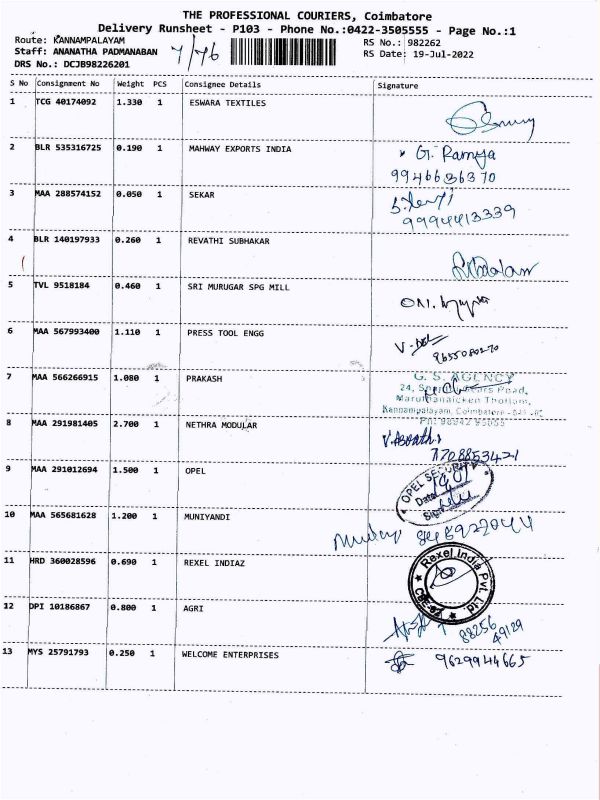 THE PROFESSIONAL COURIERS, Coimbatore
Delivery Runsheet - P103 - Phone No.:0422-3505555 - Page No.:1
Route: KANNAMPALAYAM RS No.: 982262
Staff: ANANATHA PADMANABAN RS Date: 19-Jul-2022
DRS No.: DCJB98226201
S No Consignment No Weight PCS Consignee Details Signature
1 TCG 40174092 1.330 1 ESWARA TEXTILES
2 BLR 535316725 0.190 1 MAHWAY EXPORTS INDIA G. Ramya
9946636370
3 MAA 288574152 0.050 1 SEKAR
9994413339
4 BLR 140197933 0.260 1 REVATHI SUBHAKAR
5 TVL 9518184 0.460 1 SRI MURUGAR SPG MILL
6 MAA 567993400 1.110 1 PRESS TOOL ENGG
9655080270
7 MAA 566266915 1.080 1 PRAKASH G. S. AGENCY
24,
Maruthanaicken Thottam,
Kannampalayam, Coimbatore
8 MAA 291981405 2.700 1 NETHRA MODULAR
7708853421
9 MAA 291012694 1.500 1 OPEL OPEL SECURITY
Date
Sign
10 MAA 565681628 1.200 1 MUNIYANDI
11 HRD 360028596 0.690 1 REXEL INDIAZ Rexel India Pvt. Ltd.
12 DPI 10186867 0.800 1 AGRI
88256
49129
13 MYS 25791793 0.250 1 WELCOME ENTERPRISES 9629944665